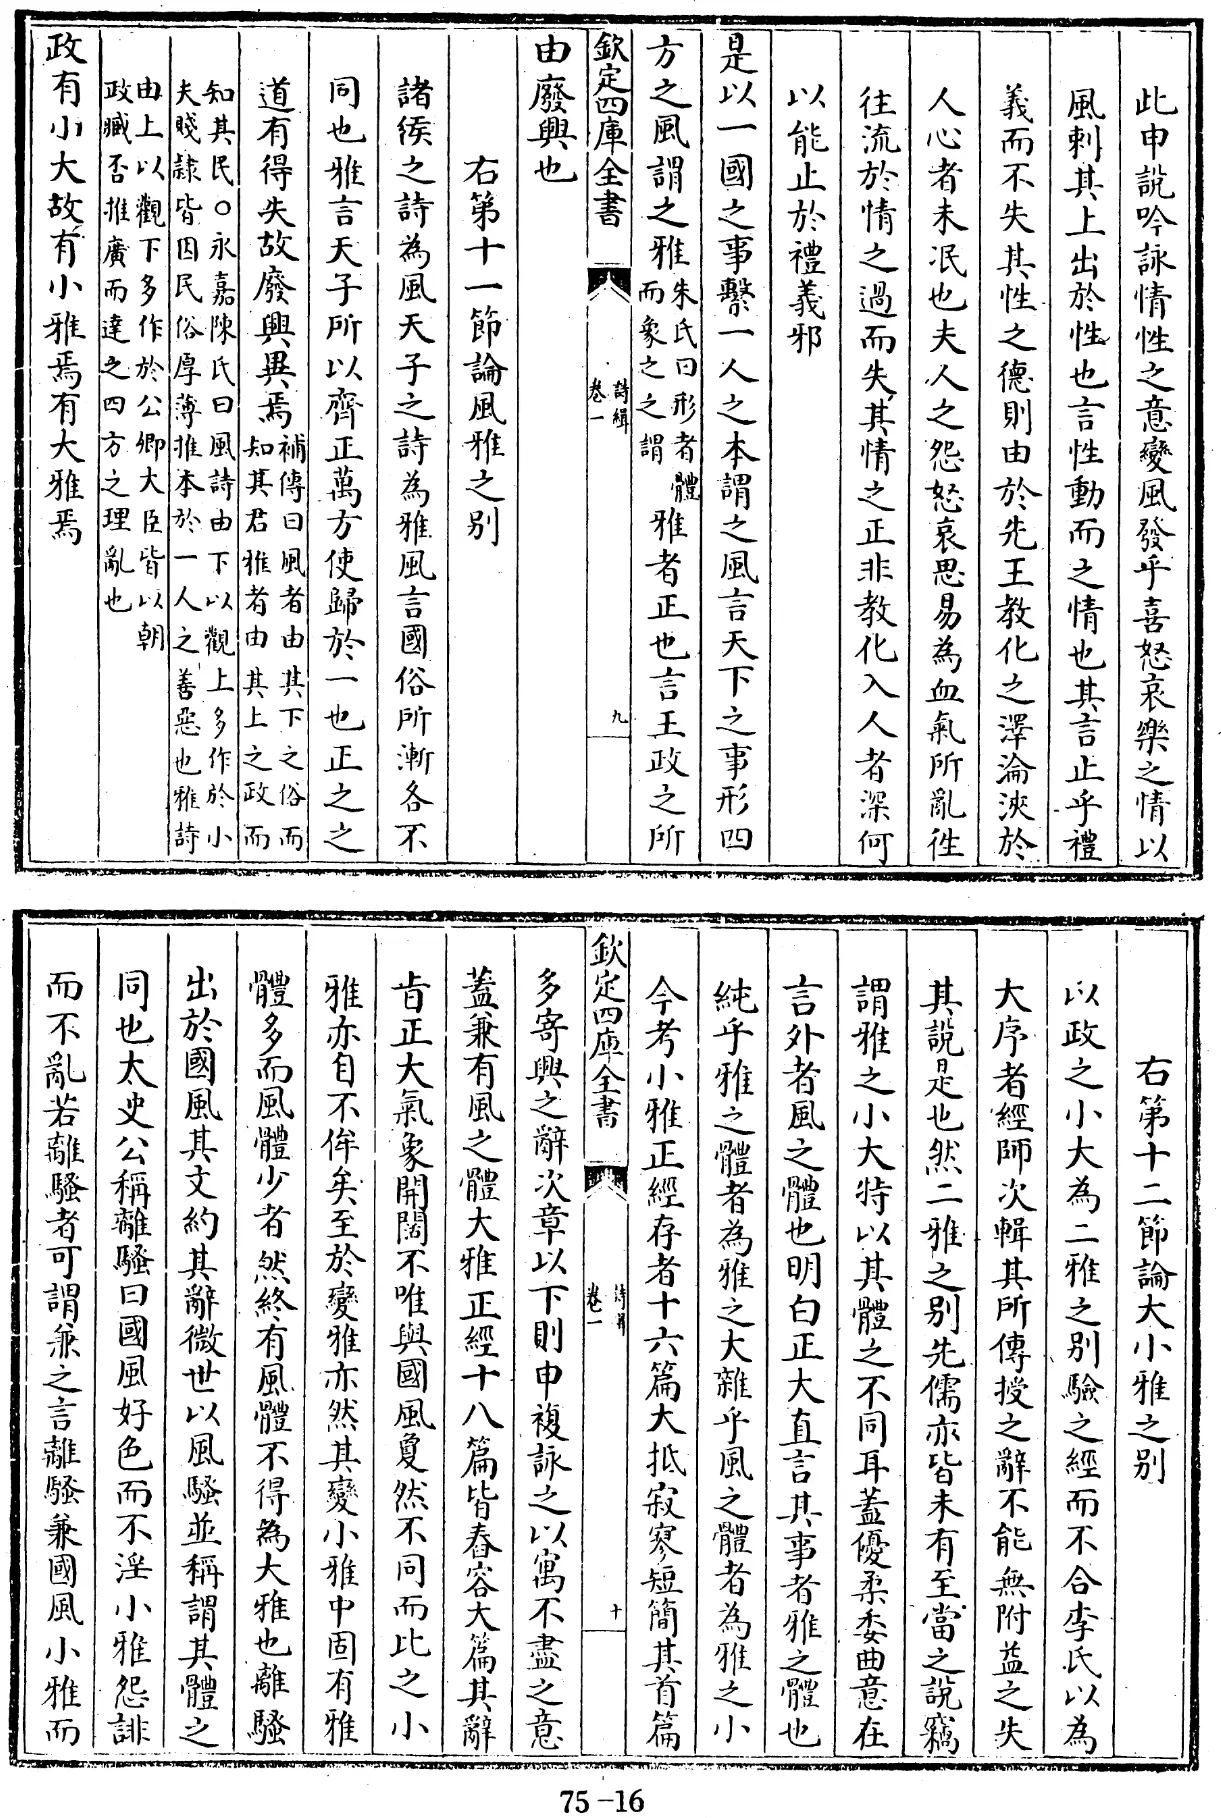 此申說吟詠情性之意變風發乎喜怒哀樂之情以
風刺其上出於性也言性動而之情也其言止乎禮
義而不失其性之德則由於先王教化之澤淪浹於
人心者未泯也夫人之怨怒哀思易為血氣所亂徃
往流於情之過而失其情之正非教化入人者深何
以能止於禮義邪
是以一國之事繫一人之本謂之風言天下之事形四
方之風謂之雅朱氏曰形者體而象之之謂雅者正也言王政之所
欽定四庫全書
詩緝
卷一
九
由廢興也
右第十一節論風雅之别
諸侯之詩為風天子之詩為雅風言國俗所漸各不
同也雅言天子所以齊正萬方使歸於一也正之之
道有得失故廢興異焉補傳曰風者由其下之俗而知其君雅者由其上之政而
知其民○永嘉陳氏曰風詩由下以觀上多作於小夫賤隷皆因民俗厚薄推本於一人之善惡也雅詩
由上以觀下多作於公卿大臣皆以朝政臧否推廣而達之四方之理亂也
政有小大故有小雅焉有大雅焉
右第十二節論大小雅之别
以政之小大為二雅之别驗之經而不合李氏以為
大序者經師次輯其所傳授之辭不能無附益之失
其說是也然二雅之别先儒亦皆未有至當之說竊
謂雅之小大特以其體之不同耳蓋優柔委曲意在
言外者風之體也明白正大直言其事者雅之體也
純乎雅之體者為雅之大雜乎風之體者為雅之小
今考小雅正經存者十六篇大抵寂寥短簡其首篇
欽定四庫全書
詩緝
卷一
十
多寄興之辭次章以下則申複詠之以寓不盡之意
蓋兼有風之體大雅正經十八篇皆舂容大篇其辭
㫖正大氣象開闊不唯與國風夐然不同而比之小
雅亦自不侔矣至於變雅亦然其變小雅中固有雅
體多而風體少者然終有風體不得為大雅也離騷
出於國風其文約其辭微世以風騷並稱謂其體之
同也太史公稱離騷曰國風好色而不淫小雅怨誹
而不亂若離騷者可謂兼之言離騷兼國風小雅而
75-16